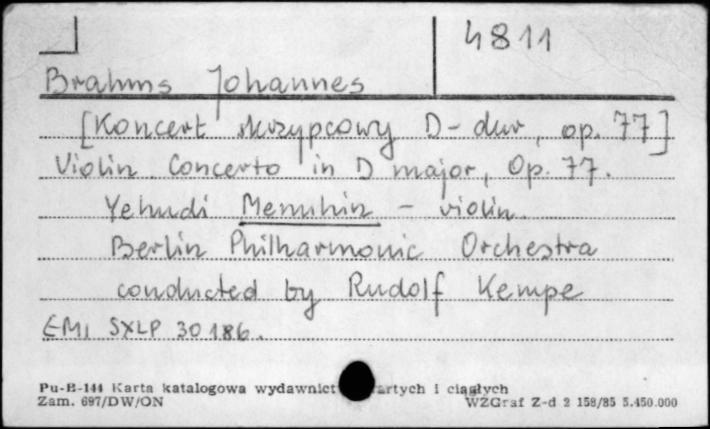 4811
Brahms Johannes
[Koncert skrzypcowy D-dur, op. 77]
Violin Concerto in D major, Op. 77.
Yehudi Menuhin - violin
Berlin Philharmonic Orchestra
conducted by Rudolf Kempe
EMI SXLP 30186.
Pu-B-144 Karta katalogowa wydawnict artych i ciągłych
Zam. 697/DW/ON WZGraf Z-d 2 158/85 5.450.000